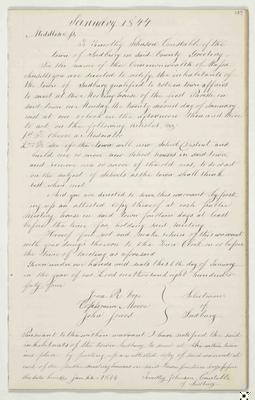 January 1844
Middlesex ss.
To Timothy Johnson Constable of the
town of Sudbury in said County Greeting.
In the name of the Commonwealth of Massa
chusetts you are directed to notify the inhabitants of
the town of Sudbury qualified to vote in town affairs
to meet at the Meeting house of the first Parish in
said town on Monday the twenty second day of January
next at one oclock in the afternoon then and there
to act on the following articles, viz
1st To choose a Moderator
2d To see if the town will new School District and
build one or more new School houses in said town
and remove one or more of the old ones, or to do or act
on the subject of schools as the town shall think
best when met
And you are directed to serve this warrant by post
ing up an attested copy thereof at each public
Meeting house in said Town fourteen days at least
before the time for holding said meeting
Hereof fail not and make return of this warrant
with your doings thereon to the Town Clerk on or before
the time of meeting as aforesaid
Given under our hands and seals this day of January
in the year of our Lord eighteen hundred
forty four
Selectmen
of
Sudbury
John Jones
Pursuant to the within warrant I have notified the said
inhabitants of the town Sudbury to meet at the within time
and place by posting up attested copy of said warrant at
each of the public meeting houses in said town fourteen days before
the date Sudbury Jan 22 1844 Timothy Johnson Constable
of Sudbury